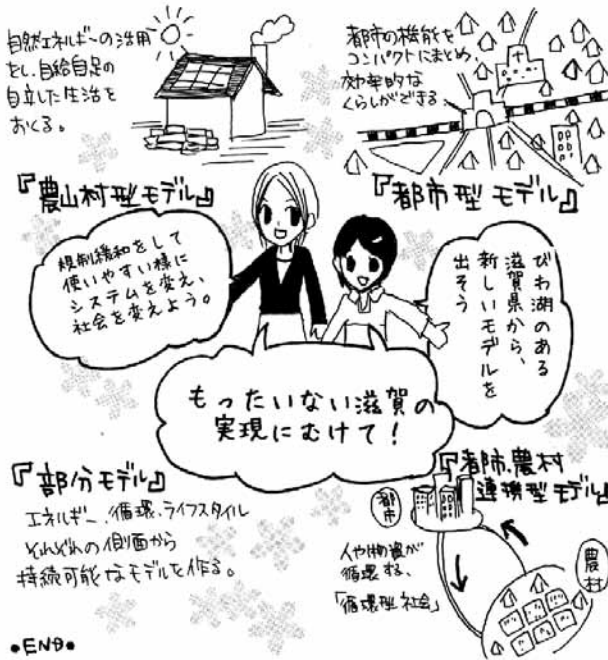 自然エネルギーの活用
をし、自給自足の
自立した生活を
おくる。
都市の機能を
コンパクトにまとめ、
効率的な
くらしができる
『農山村型モデル』
『都市型モデル』
規制緩和をして
使いやすい様に
システムを変え、
社会を変えよう。
びわ湖のある
滋賀県から、
新しいモデルを
出そう
もったいない滋賀の
実現にむけて!
『部分モデル』
エネルギー、循環、ライフスタイル
それぞれの側面から
持続可能なモデルを作る。
『都市、農村
連携型モデル』
都市
人や物資が
循環する、
「循環型社会」
農村
•END•